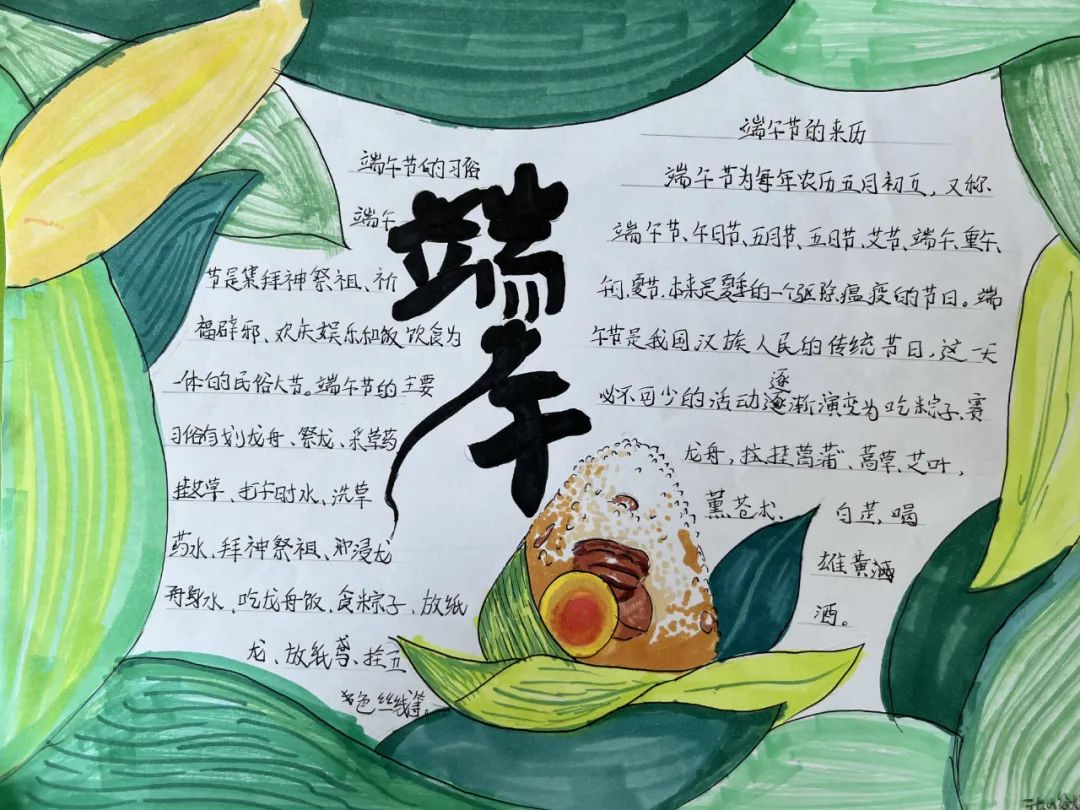 端午
端午节的习俗
端午
节是集拜神祭祖、祈
福辟邪、欢庆娱乐和饭饮食为
一体的民俗大节。端午节的主要
习俗有划龙舟、祭龙、采草药
挂艾草、打午时水、洗草
药水、拜神祭祖、浸龙
舟水、吃龙舟饭、食粽子、放纸
龙、放纸鸢、拴五
色丝线等。
端午节的来历
端午节为每年农历五月初五，又称
端午节、午日节、五月节、五日节、艾节、端午、重午
午日、夏节，本来是夏季的一个驱除瘟疫的节日。端
午节是我国汉族人民的传统节日，这一天
必不可少的活动逐渐演变为吃粽子、赛
龙舟，挂菖蒲、蒿草、艾叶，
薰苍术、白芷，喝
雄黄酒
酒。